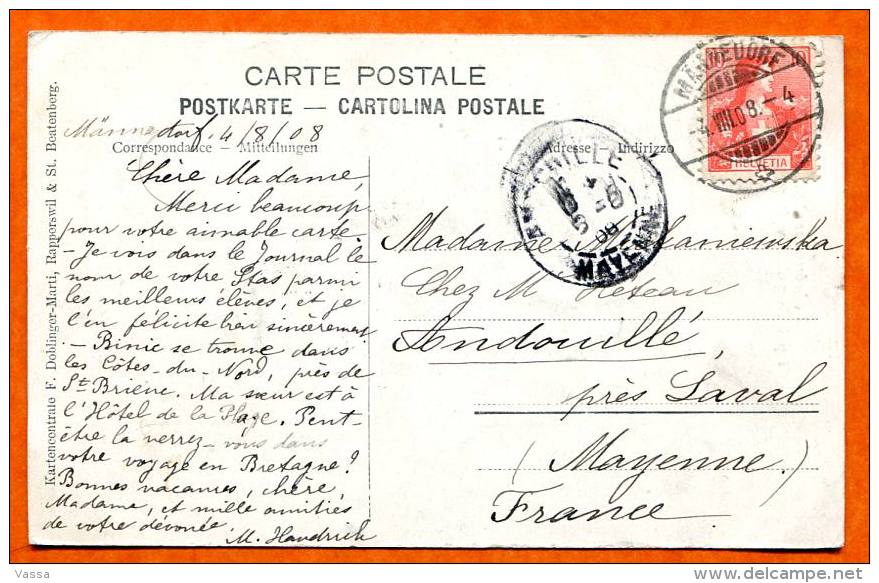 CARTE POSTALE
POSTKARTE — CARTOLINA POSTALE
Männedorf, 4/8/08
Correspondance — Mitteilungen
Adresse — Indirizzo
Chère Madame,
Merci beaucoup
pour votre aimable carte
- Je vois dans le Journal le
nom de votre Stas parmi
les meilleurs élèves, et je
l'en félicite bien sincèrement
- Binic se trouve dans
les Côtes-du-Nord, près de
St Brieuc. Ma sœur est à
l'Hôtel de la Plage. Peut-
être la verrez-vous dans
votre voyage en Bretagne?
Bonnes vacances, chère
Madame, et mille amitiés
de votre dévouée
M.
Kartencentrale F. Doblinger-Marti, Rapperswil & St. Beatenberg.
MÄNNEDORF
4.VIII.08.-4
HELVETIA
10
MAYENNE
Madame
Chez M
Andouillé,
près Laval
(Mayenne.)
France
Vassa
http://www.delcampe.net